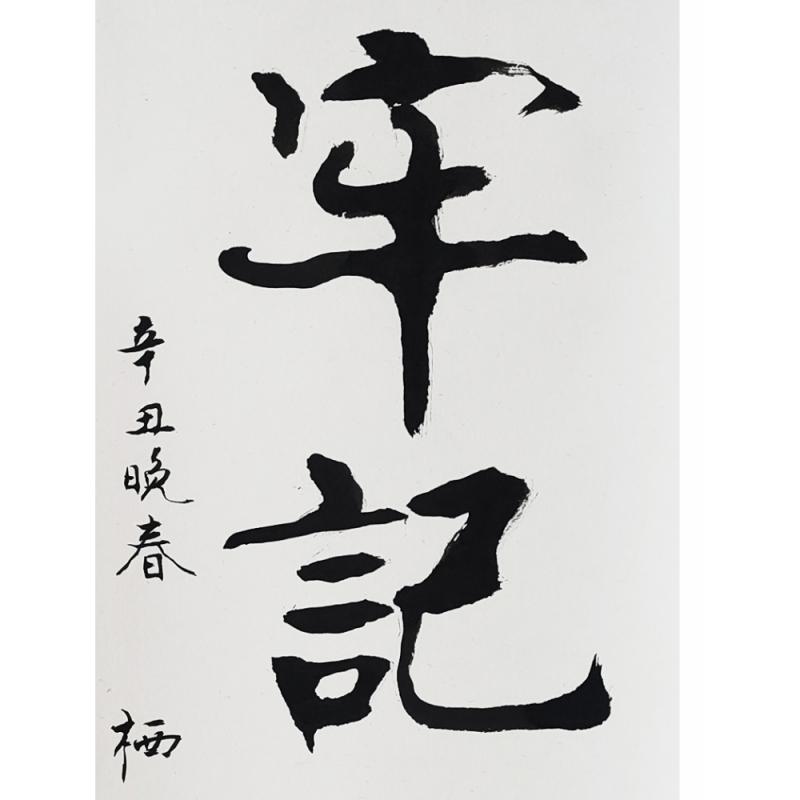 牢記
辛丑晚春
栖